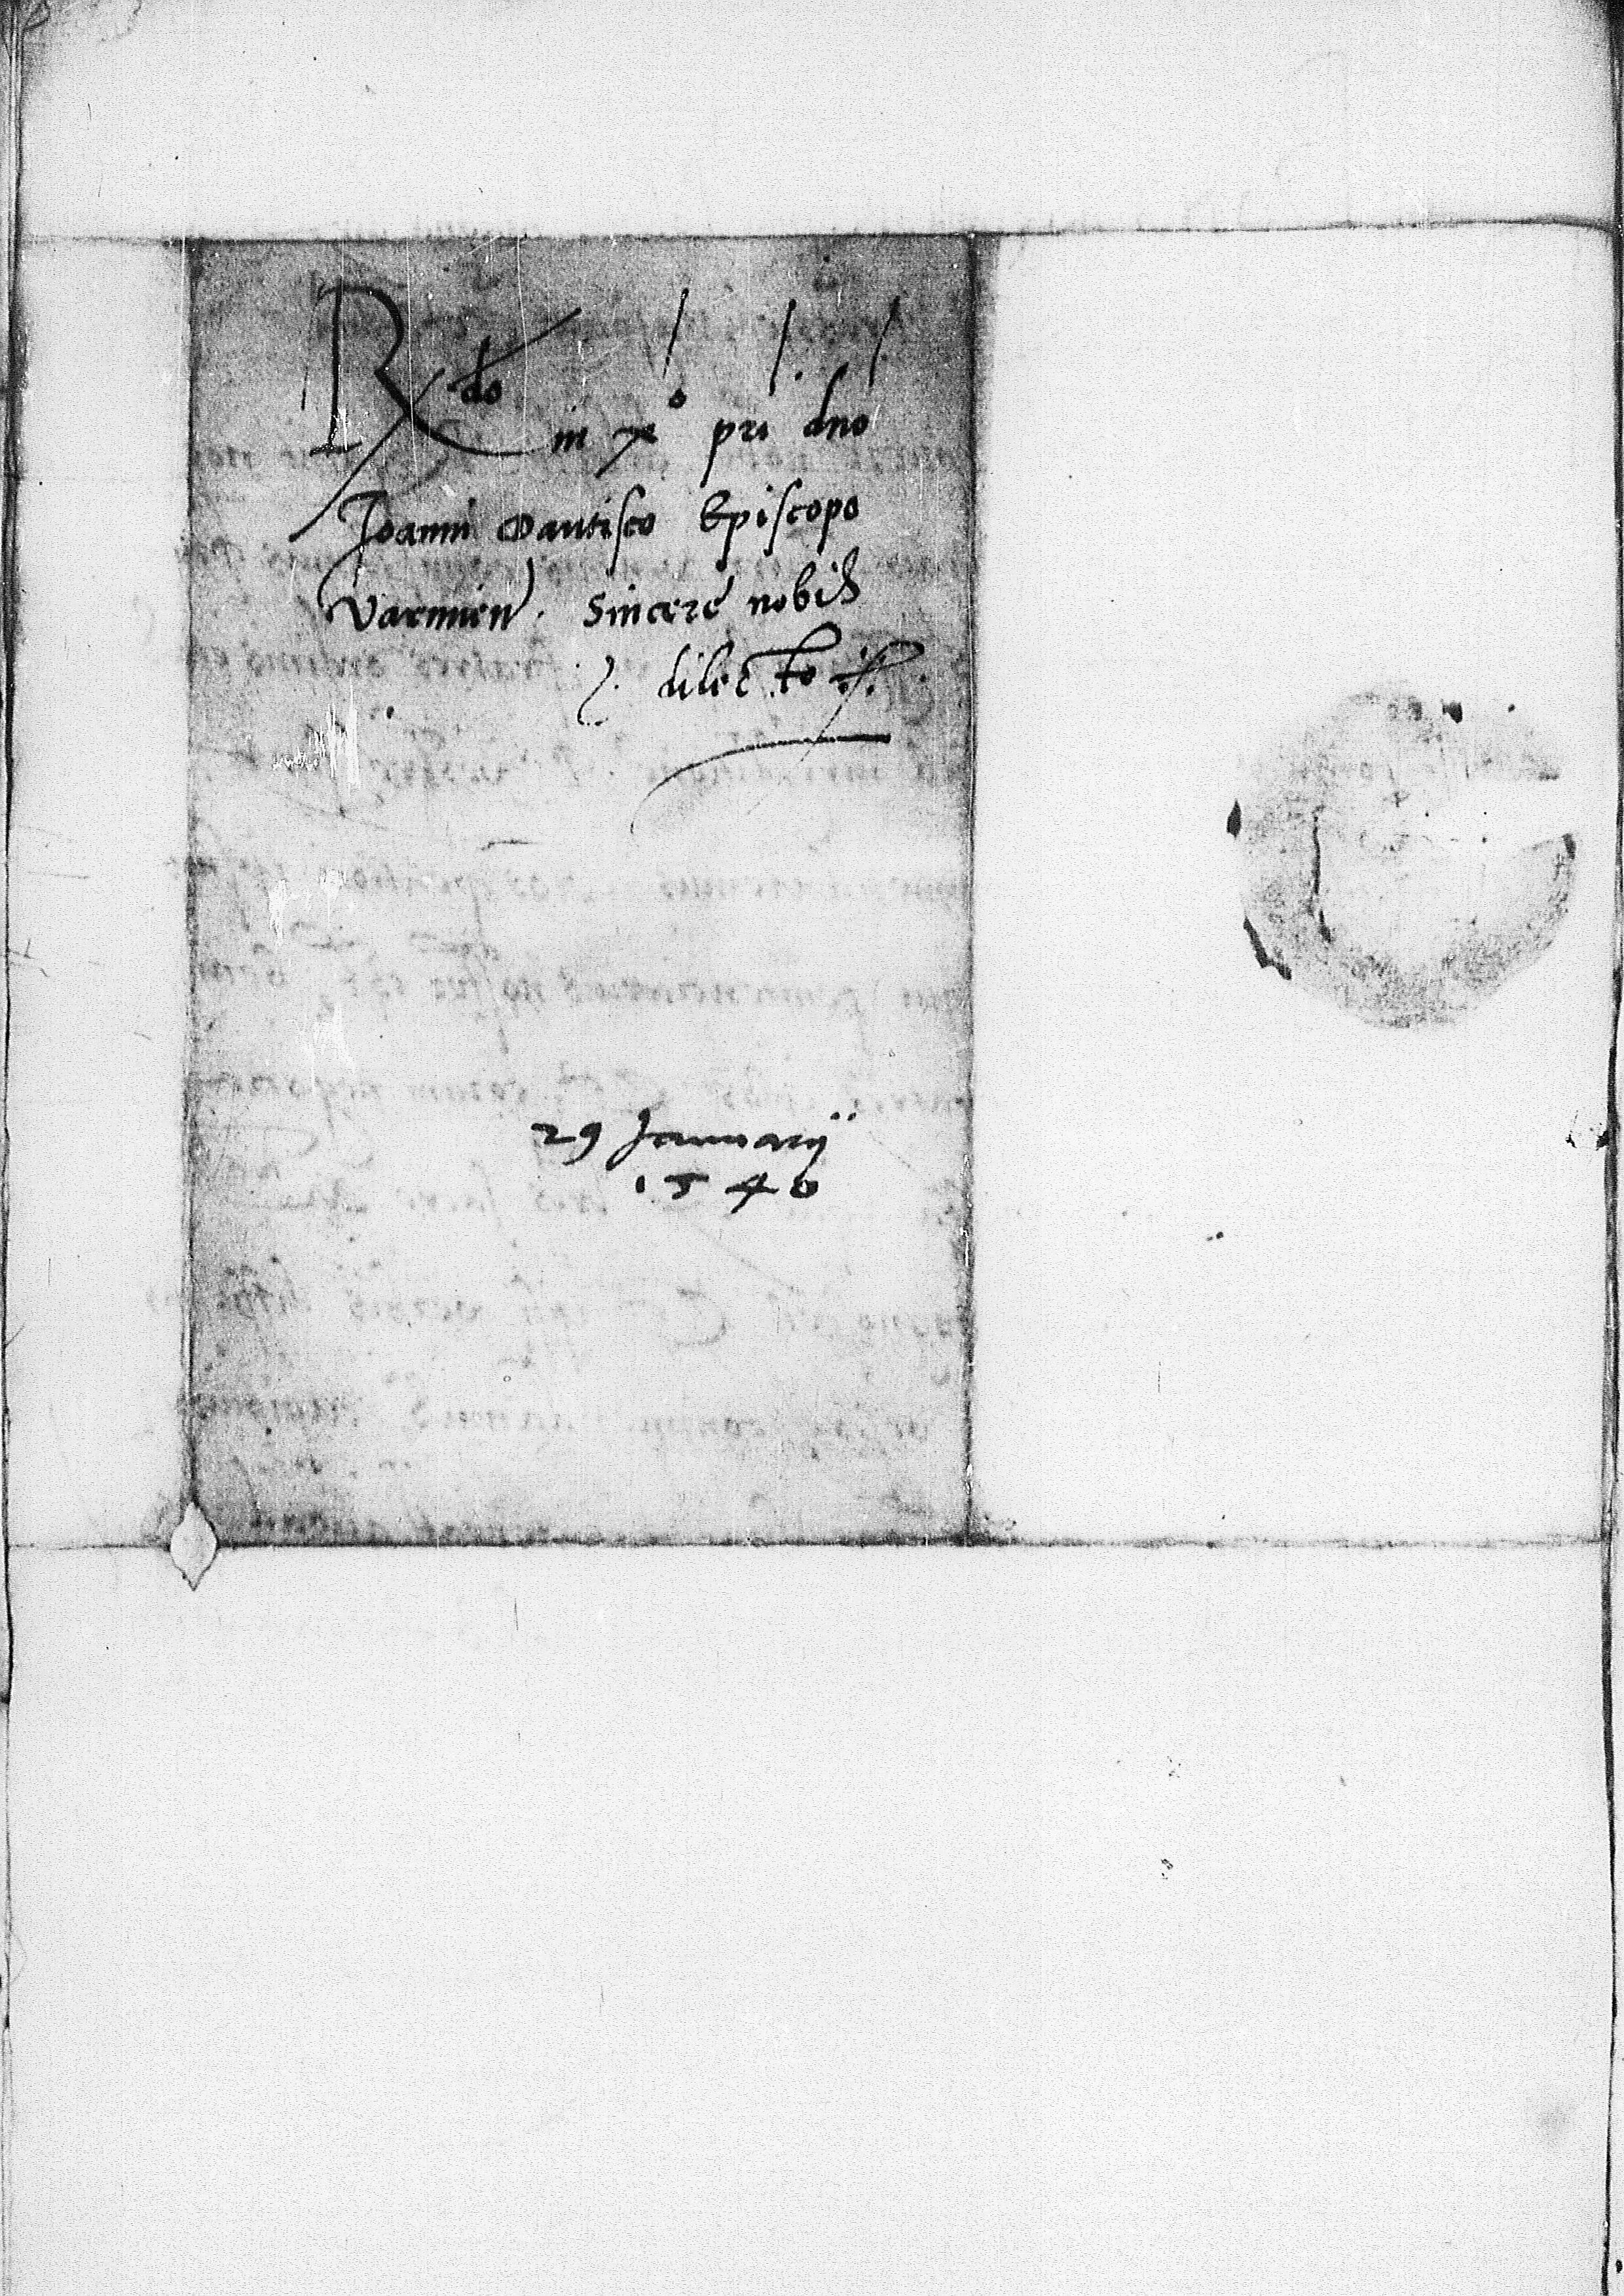 Rdo in xo pri dno
Joanni Dantisco Episcopo
Varmien. Sincere nobis
dilecto
29 Januarij
1540